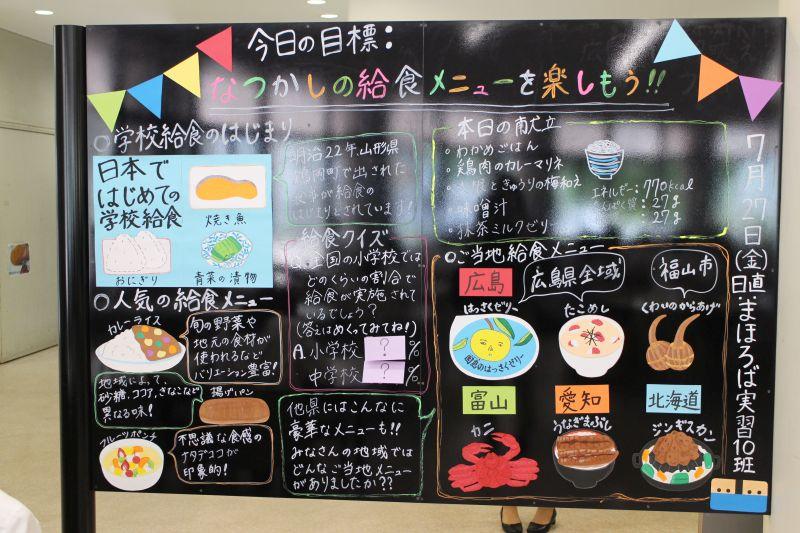 今日の目標:
なつかしの給食メニューを楽しもう!!
○学校給食のはじまり
日本で
はじめての
学校給食
焼き魚
おにぎり
青菜の漬物
明治22年、山形県
鶴岡町で出された
食事が給食の
はじまりとされています!
給食クイズ
Q.全国の小学校では
どのくらいの割合で
給食が実施されて
いるでしょう?
(答えはめくってみてね!)
A.小学校 ? %
中学校 ? %
○人気の給食メニュー
カレーライス
旬の野菜や
地元の食材が
使われるなど
バリエーション豊富!
地域によって、
砂糖、ココア、きなこなど
異なる味!
揚げパン
フルーツポンチ
不思議な食感の
ナタデココが
印象的!
他県にはこんなに
豪華なメニューも!!
みなさんの地域では
どんなご当地メニュー
がありましたか??
本日の献立
・わかめごはん
・鶏肉のカレーマリネ
・大根ときゅうりの梅和え
・味噌汁
・抹茶ミルクゼリー
エネルギー: 770kcal
たんぱく質: 27g
: 27g
○ご当地給食メニュー
広島
広島県全域
福山市
はっさくゼリー
因島のはっさくゼリー
たこめし
くわいのからあげ
富山
カニ
愛知
うなぎまぶし
北海道
ジンギスカン
7月27日(金)
日直 まほろば実習10班